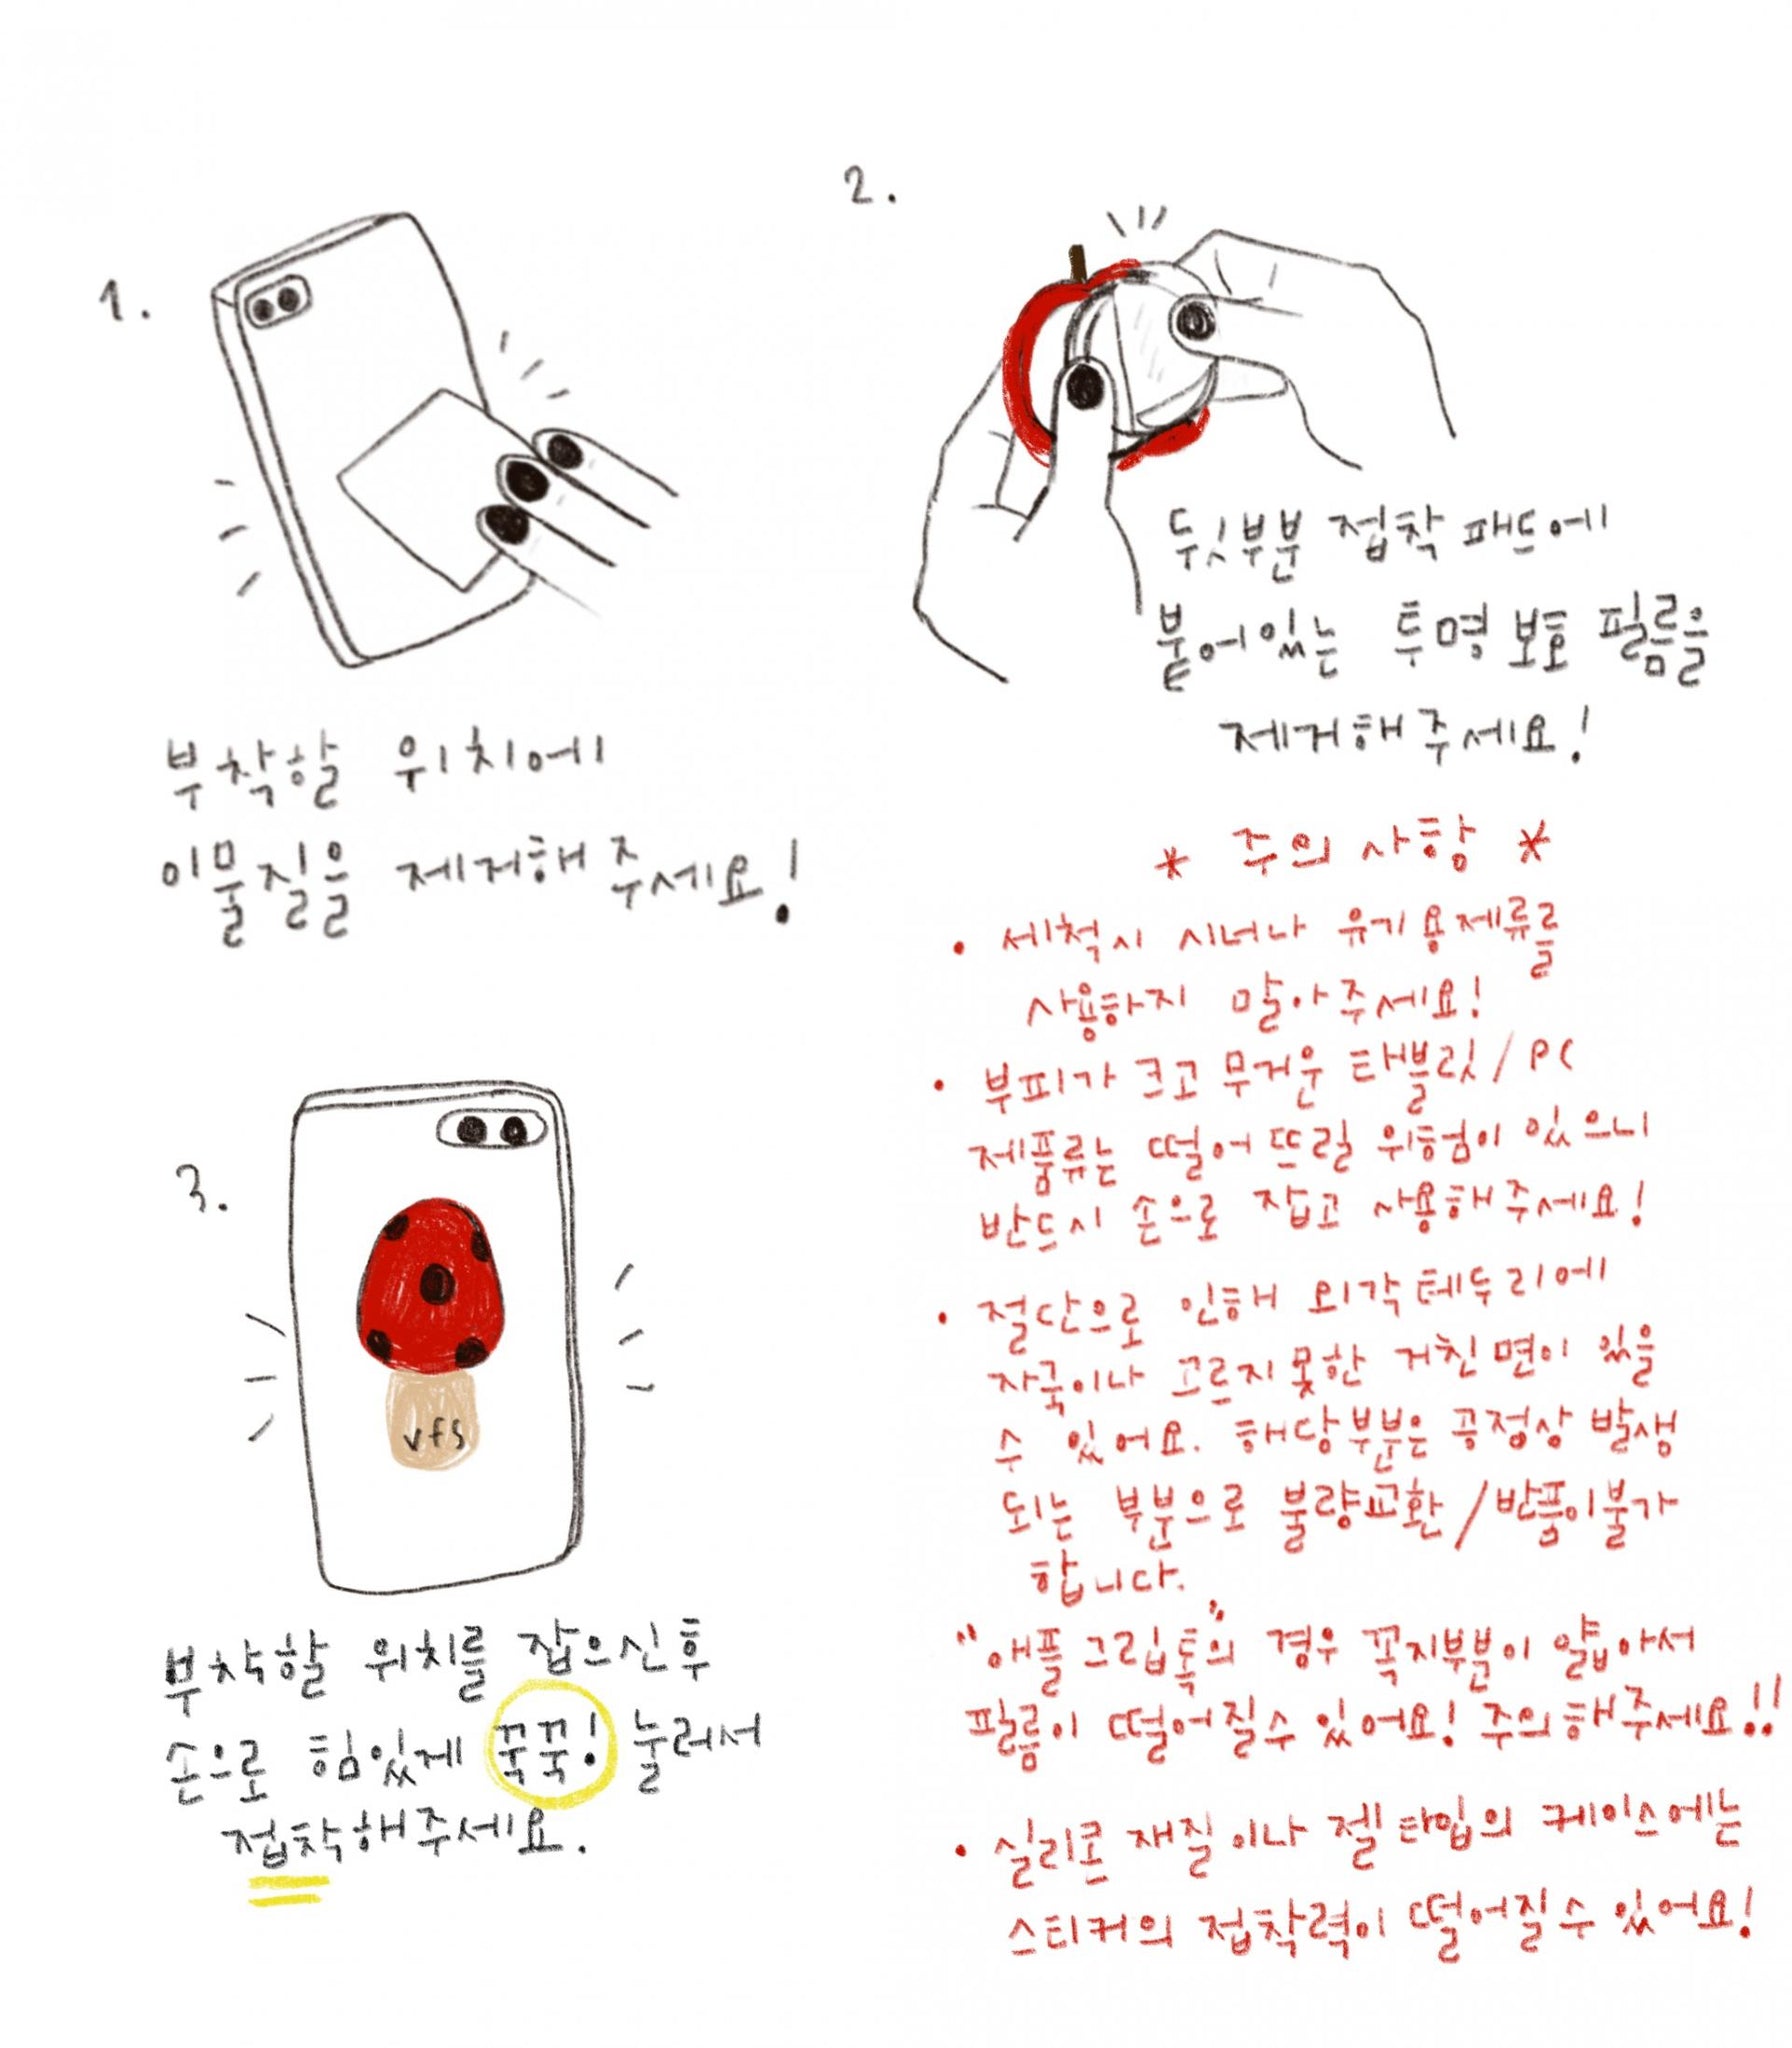 1.
부착할 위치에
이물질을 제거해 주세요!
2.
뒷부분 접착 패드에
붙어있는 투명 보호 필름을
제거해 주세요!
3.
vfs
부착할 위치를 잡으신 후
손으로 힘있게 꾹꾹! 눌러서
접착해주세요.
* 주의 사항 *
• 세척시 시너나 유기용제류를
사용하지 말아주세요!
• 부피가 크고 무거운 태블릿/PC
제품류는 떨어뜨릴 위험이 있으니
반드시 손으로 잡고 사용해주세요!
• 절단으로 인해 외각 테두리에
자국이나 고르지 못한 거친면이 있을
수 있어요. 해당부분은 공정상 발생
되는 부분으로 불량교환/반품이불가
합니다.
"애플 그립톡"의 경우 꼭지부분이 얇아서
필름이 떨어질수 있어요! 주의해주세요!!
• 실리콘 재질이나 젤타입의 케이스에는
스티커의 접착력이 떨어질수 있어요!